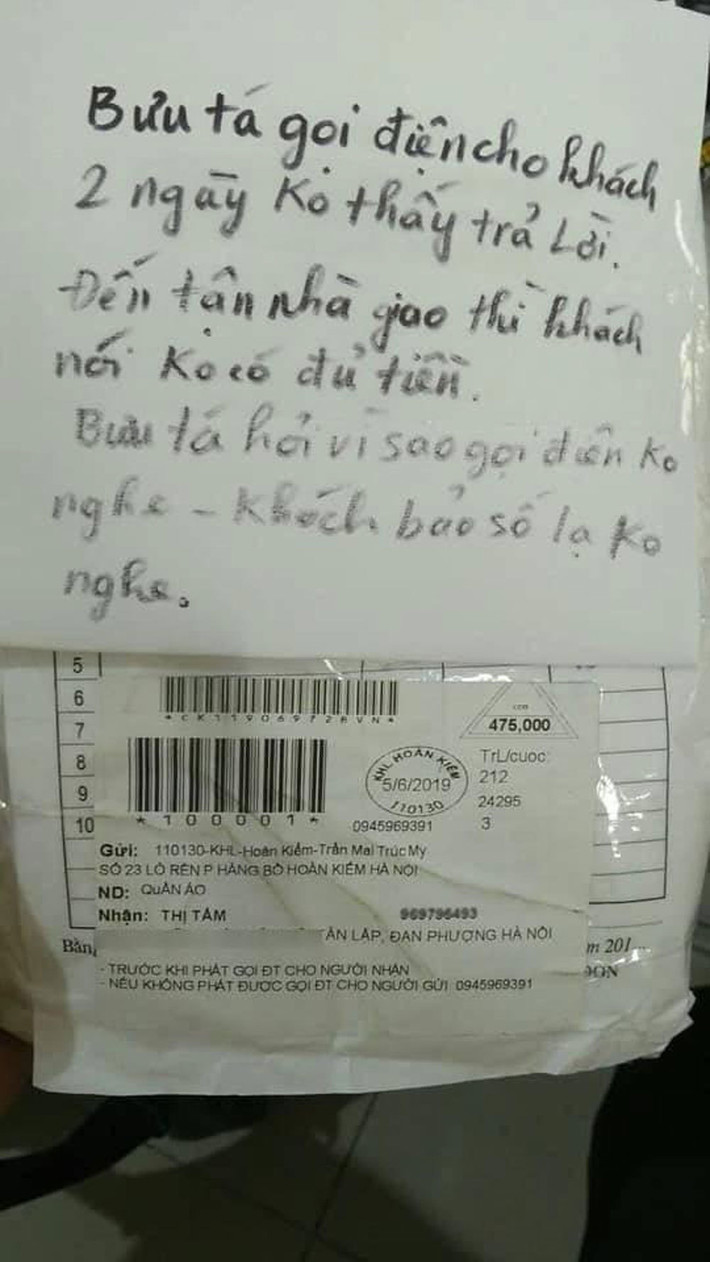 Bưu tá gọi điện cho khách
2 ngày Ko thấy trả Lời.
Đến tận nhà giao thì khách
nói Ko có đủ tiền.
Bưu tá hỏi vì sao gọi điện Ko
nghe - Khách bảo số lạ Ko
nghe.
5
6
7
8
9
10
*CK119069728VN*
CCN
475,000
*100001*
KHL HOÀN KIẾM
5/6/2019
110130
TrL/cuoc:
212
24295
0945969391 3
Gửi: 110130-KHL-Hoàn Kiếm-Trần Mai Trúc My
SỐ 23 LÒ RÈN P HÀNG BỒ HOÀN KIẾM HÀ NỘI
ND: QUẦN ÁO
Nhận: THỊ TÂM 969796493
ÂN LẬP, ĐAN PHƯỢNG HÀ NỘI
Bằn
m 201...
- TRƯỚC KHI PHÁT GỌI ĐT CHO NGƯỜI NHẬN
- NẾU KHÔNG PHÁT ĐƯỢC GỌI ĐT CHO NGƯỜI GỬI 0945969391